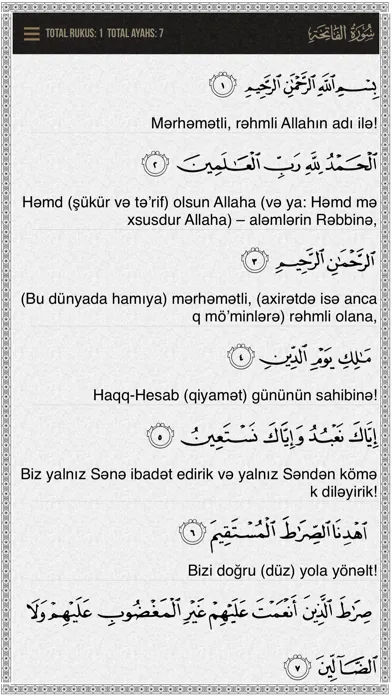 TOTAL RUKUS: 1 TOTAL AYAHS: 7 سُورَةُ الفَاتِحَةِ
بِسْمِ اللَّهِ الرَّحْمَٰنِ الرَّحِيمِ ١
Mərhəmətli, rəhmli Allahın adı ilə!
الْحَمْدُ لِلَّهِ رَبِّ الْعَالَمِينَ ٢
Həmd (şükür və tə’rif) olsun Allaha (və ya: Həmd mə
xsusdur Allaha) – aləmlərin Rəbbinə,
الرَّحْمَٰنِ الرَّحِيمِ ٣
(Bu dünyada hamıya) mərhəmətli, (axirətdə isə anca
q mö’minlərə) rəhmli olana,
مَالِكِ يَوْمِ الدِّينِ ٤
Haqq-Hesab (qiyamət) gününün sahibinə!
إِيَّاكَ نَعْبُدُ وَإِيَّاكَ نَسْتَعِينُ ٥
Biz yalnız Sənə ibadət edirik və yalnız Səndən kömə
k diləyirik!
اهْدِنَا الصِّرَاطَ الْمُسْتَقِيمَ ٦
Bizi doğru (düz) yola yönəlt!
صِرَاطَ الَّذِينَ أَنْعَمْتَ عَلَيْهِمْ غَيْرِ الْمَغْضُوبِ عَلَيْهِمْ وَلَا
الضَّالِّينَ ٧